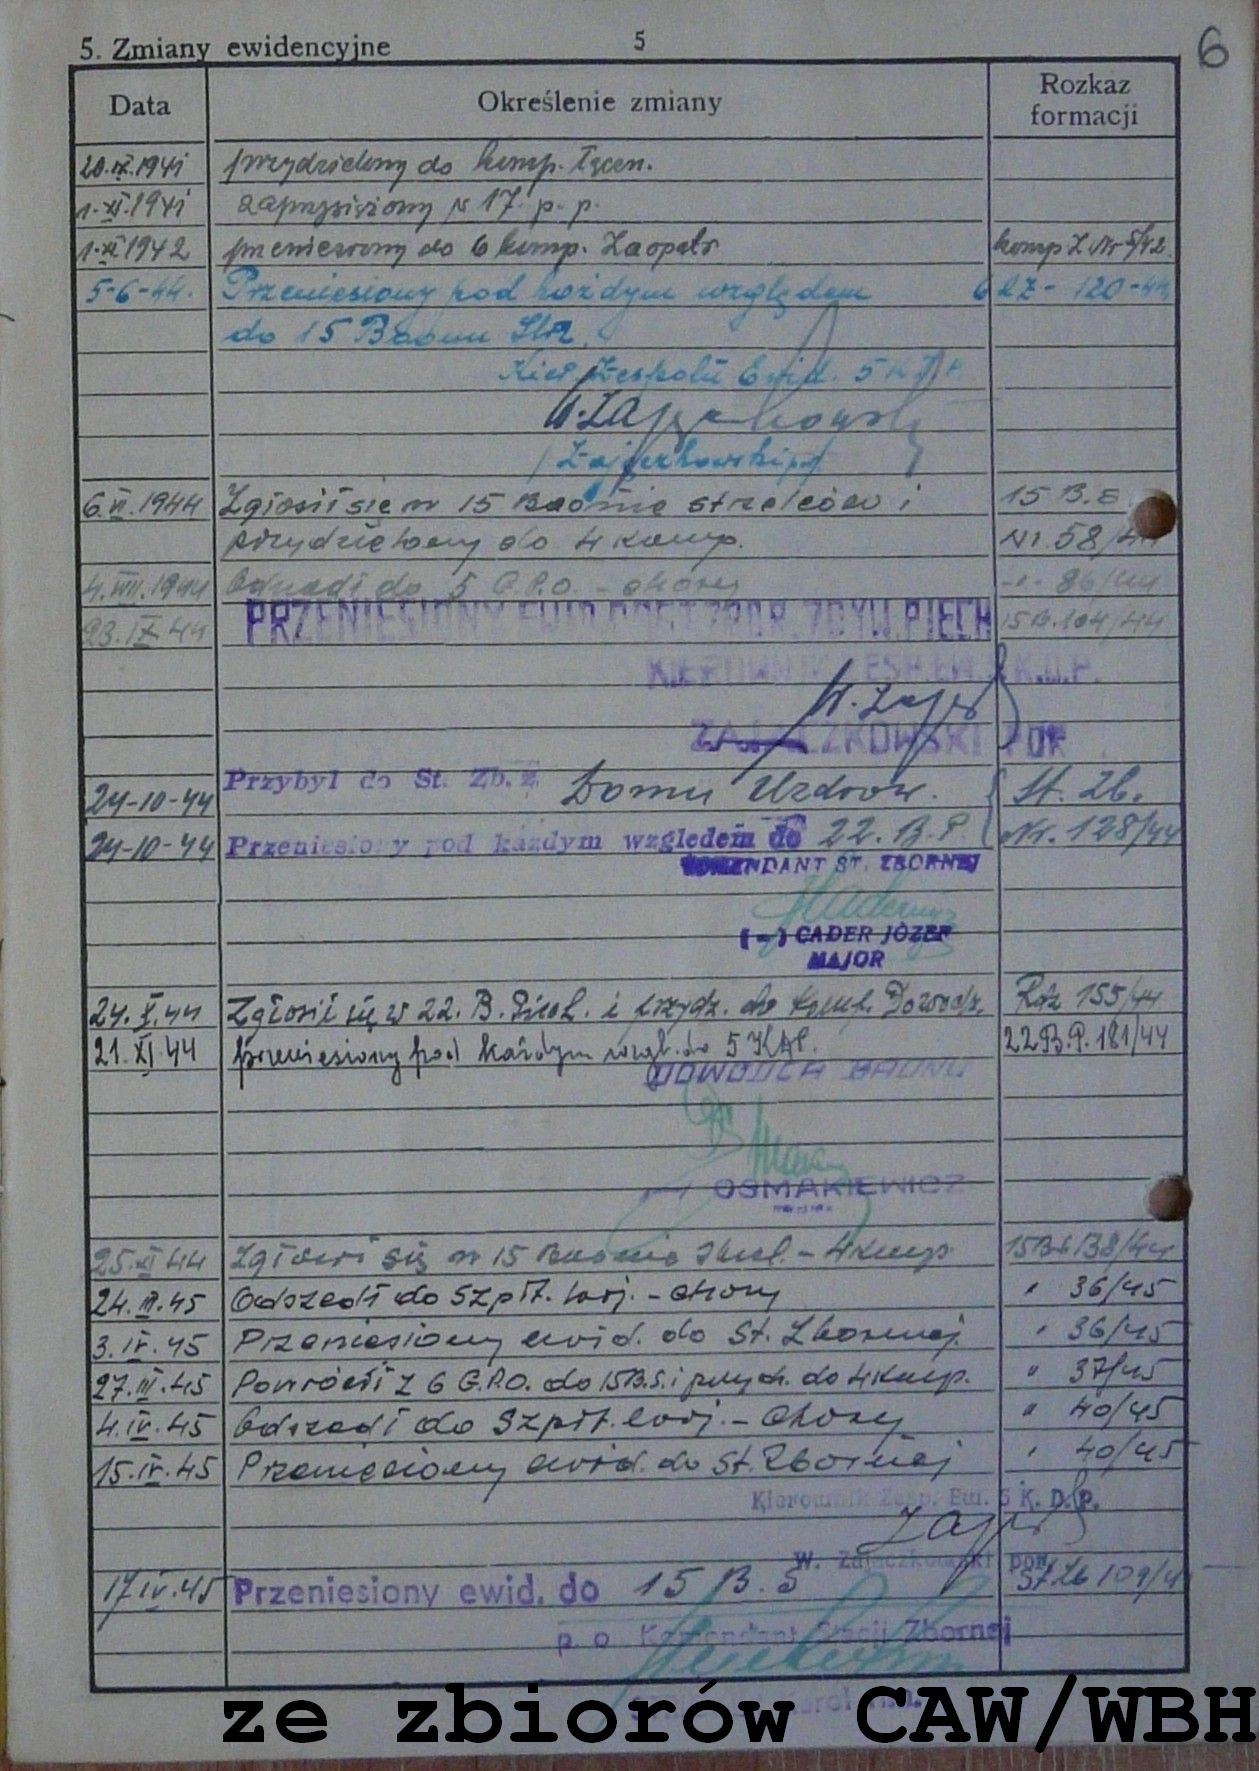 5. Zmiany ewidencyjne 5 6
Data Określenie zmiany Rozkaz formacji
20.IX.1941 przydzielony do komp. łączn.
1.XI.1941 zaprzysiężony w 17. p. p.
1.XI.1942 przeniesiony do 6 komp. Zaopatr. komp Z. Nr 5/42
5-6-44. Przeniesiony pod każdym względem 120-44
do 15 Baonu Strz.
Kier. Zespołu Ewid. 5 K.D.P.
W. Zajączkowski
6.VI.1944 Zgłosił się w 15 Baonie strzelców i 15 B.S.
przydzielony do 4 komp. Nr. 58/44
4.VIII.1944 Odszedł do 5 C.P.O. - chory -"- 86/44
23.IX.44 PRZENIESIONY EWID. DO ST. ZBOR. 7 DYW. PIECH 15 B. 104/44
KIEROWNIK ZESP. EW. 5 K.D.P.
W. Zaj
ZAJĄCZKOWSKI POR
24-10-44 Przybył do St. Zb. z Domu Uzdrow. St. Zb.
24-10-44 Przeniesiony pod każdym względem do 22. B. P. Nr. 128/44
KOMENDANT ST. ZBORNEJ
(-) CADER JÓZEF
MAJOR
24.X.44 Zgłosił się w 22. B. Piech. i przydz. do Komp. Dowodz. Rozk 155/44
21.XI.44 przeniesiony pod każdym wzgl. do 5 KDP. 22 B.P. 181/44
DOWÓDCA BAONU
OSMAKIEWICZ
25.XI.44 Zgłosił się w 15 Baonie Strzel. - 4 komp. 15 B.S. 138/44
24.III.45 Odszedł do Szpit. woj. - chory " 36/45
3.IV.45 Przeniesiony ewid. do St. Zbornej. " 36/45
27.III.45 Powrócił z 6 C.P.O. do 15 B.S. i przydz. do 4 komp. " 37/45
4.IV.45 Odszedł do Szpit. woj. - chory " 40/45
15.IV.45 Przeniesiony ewid. do St. Zbornej " 40/45
Kierownik Zesp. Ew. 5 K. D. P.
W. Zajączkowski por.
17.IV.45 Przeniesiony ewid. do 15 B. S St. Zb 109/4
p. o Komendant Stacji Zbornej
ze zbiorów CAW/WBH